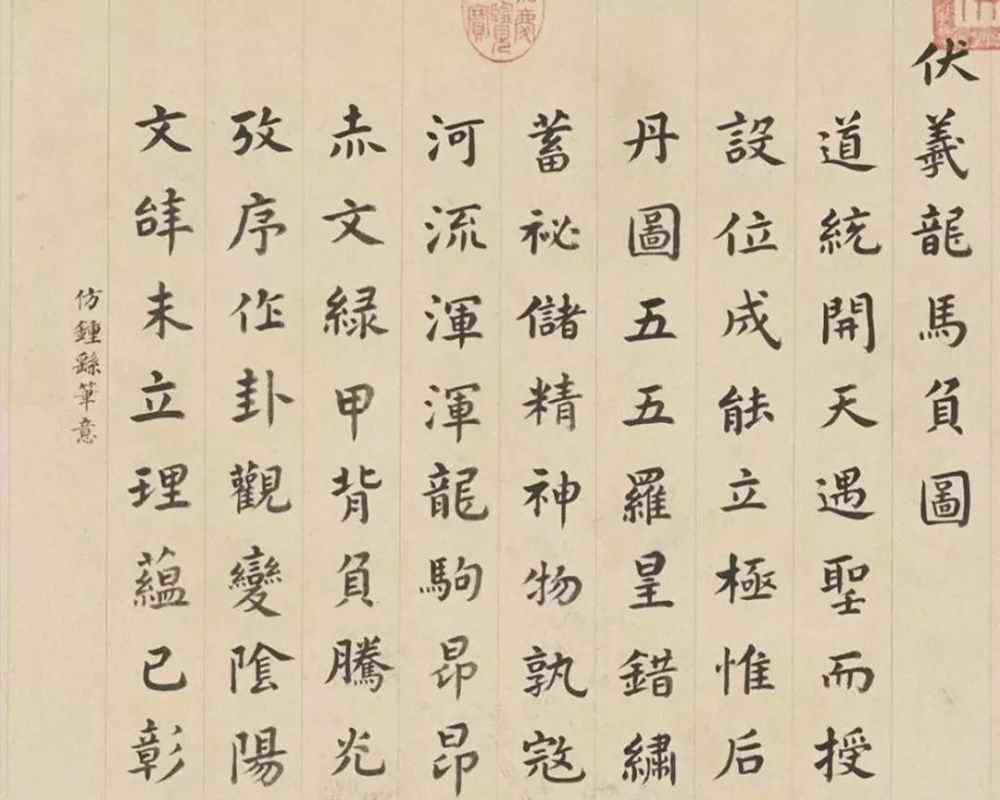 伏羲龍馬負圖
道統開天遇聖而授
設位成能立極惟后
丹圖五五羅皇錯繡
蓄祕儲精神物孰寇
河流渾渾龍駒昂昂
赤文緑甲背負騰光
攷序作卦觀變陰陽
文肂未立理蘊已彰
仿鍾繇筆意